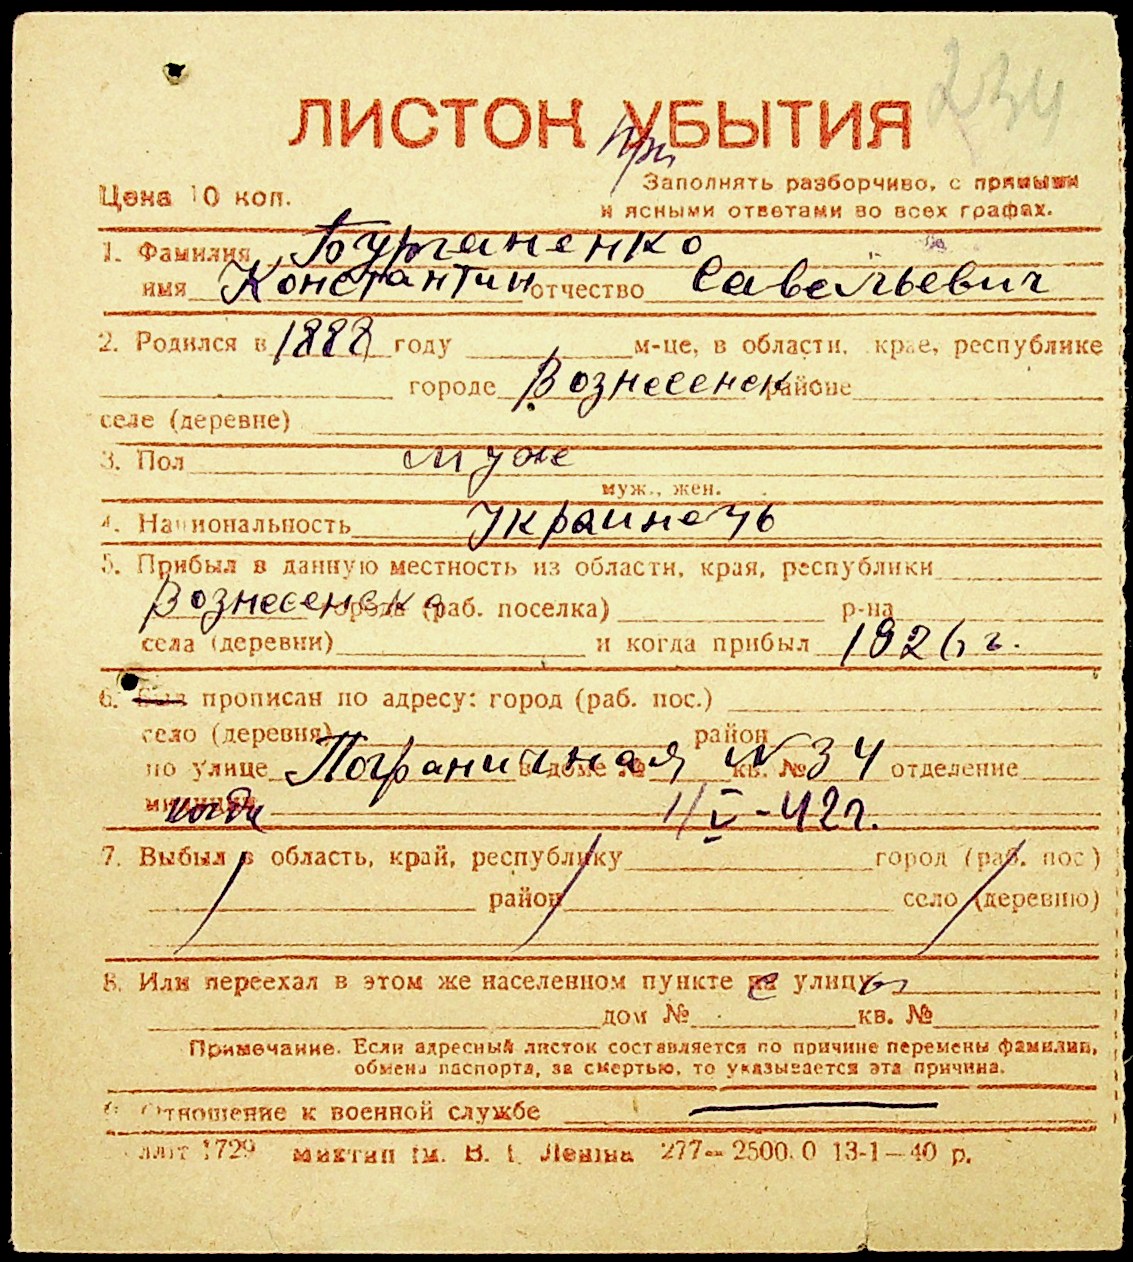 234
ЛИСТОК УБЫТИЯ
при
Цена 10 коп.
Заполнять разборчиво, с прямыми
и ясными ответами во всех графах.
1. Фамилия Бурганенко
имя Константин отчество Савельевич
2. Родился в 1888 году м-це, в области, крае, республике
городе Вознесенск районе
селе (деревне)
3. Пол муж
муж., жен.
4. Национальность Украинець
5. Прибыл в данную местность из области, края, республики
Вознесенска города (раб. поселка) р-на
села (деревни) и когда прибыл 1926 г.
6. Был прописан по адресу: город (раб. пос.)
село (деревня) район
по улице Пограничная в доме № кв. № 34 отделение
милиции когда 1/V-42 г.
7. Выбыл в область, край, республику город (раб. пос.)
район село (деревню)
8. Или переехал в этом же населенном пункте на с улицу ы
дом № кв. №
Примечание. Если адресный листок составляется по причине перемены фамилии,
обмена паспорта, за смертью, то указывается эта причина.
9. Отношение к военной службе
1729 ім. В. І. Леніна 277—2500.0 13-1—40 р.